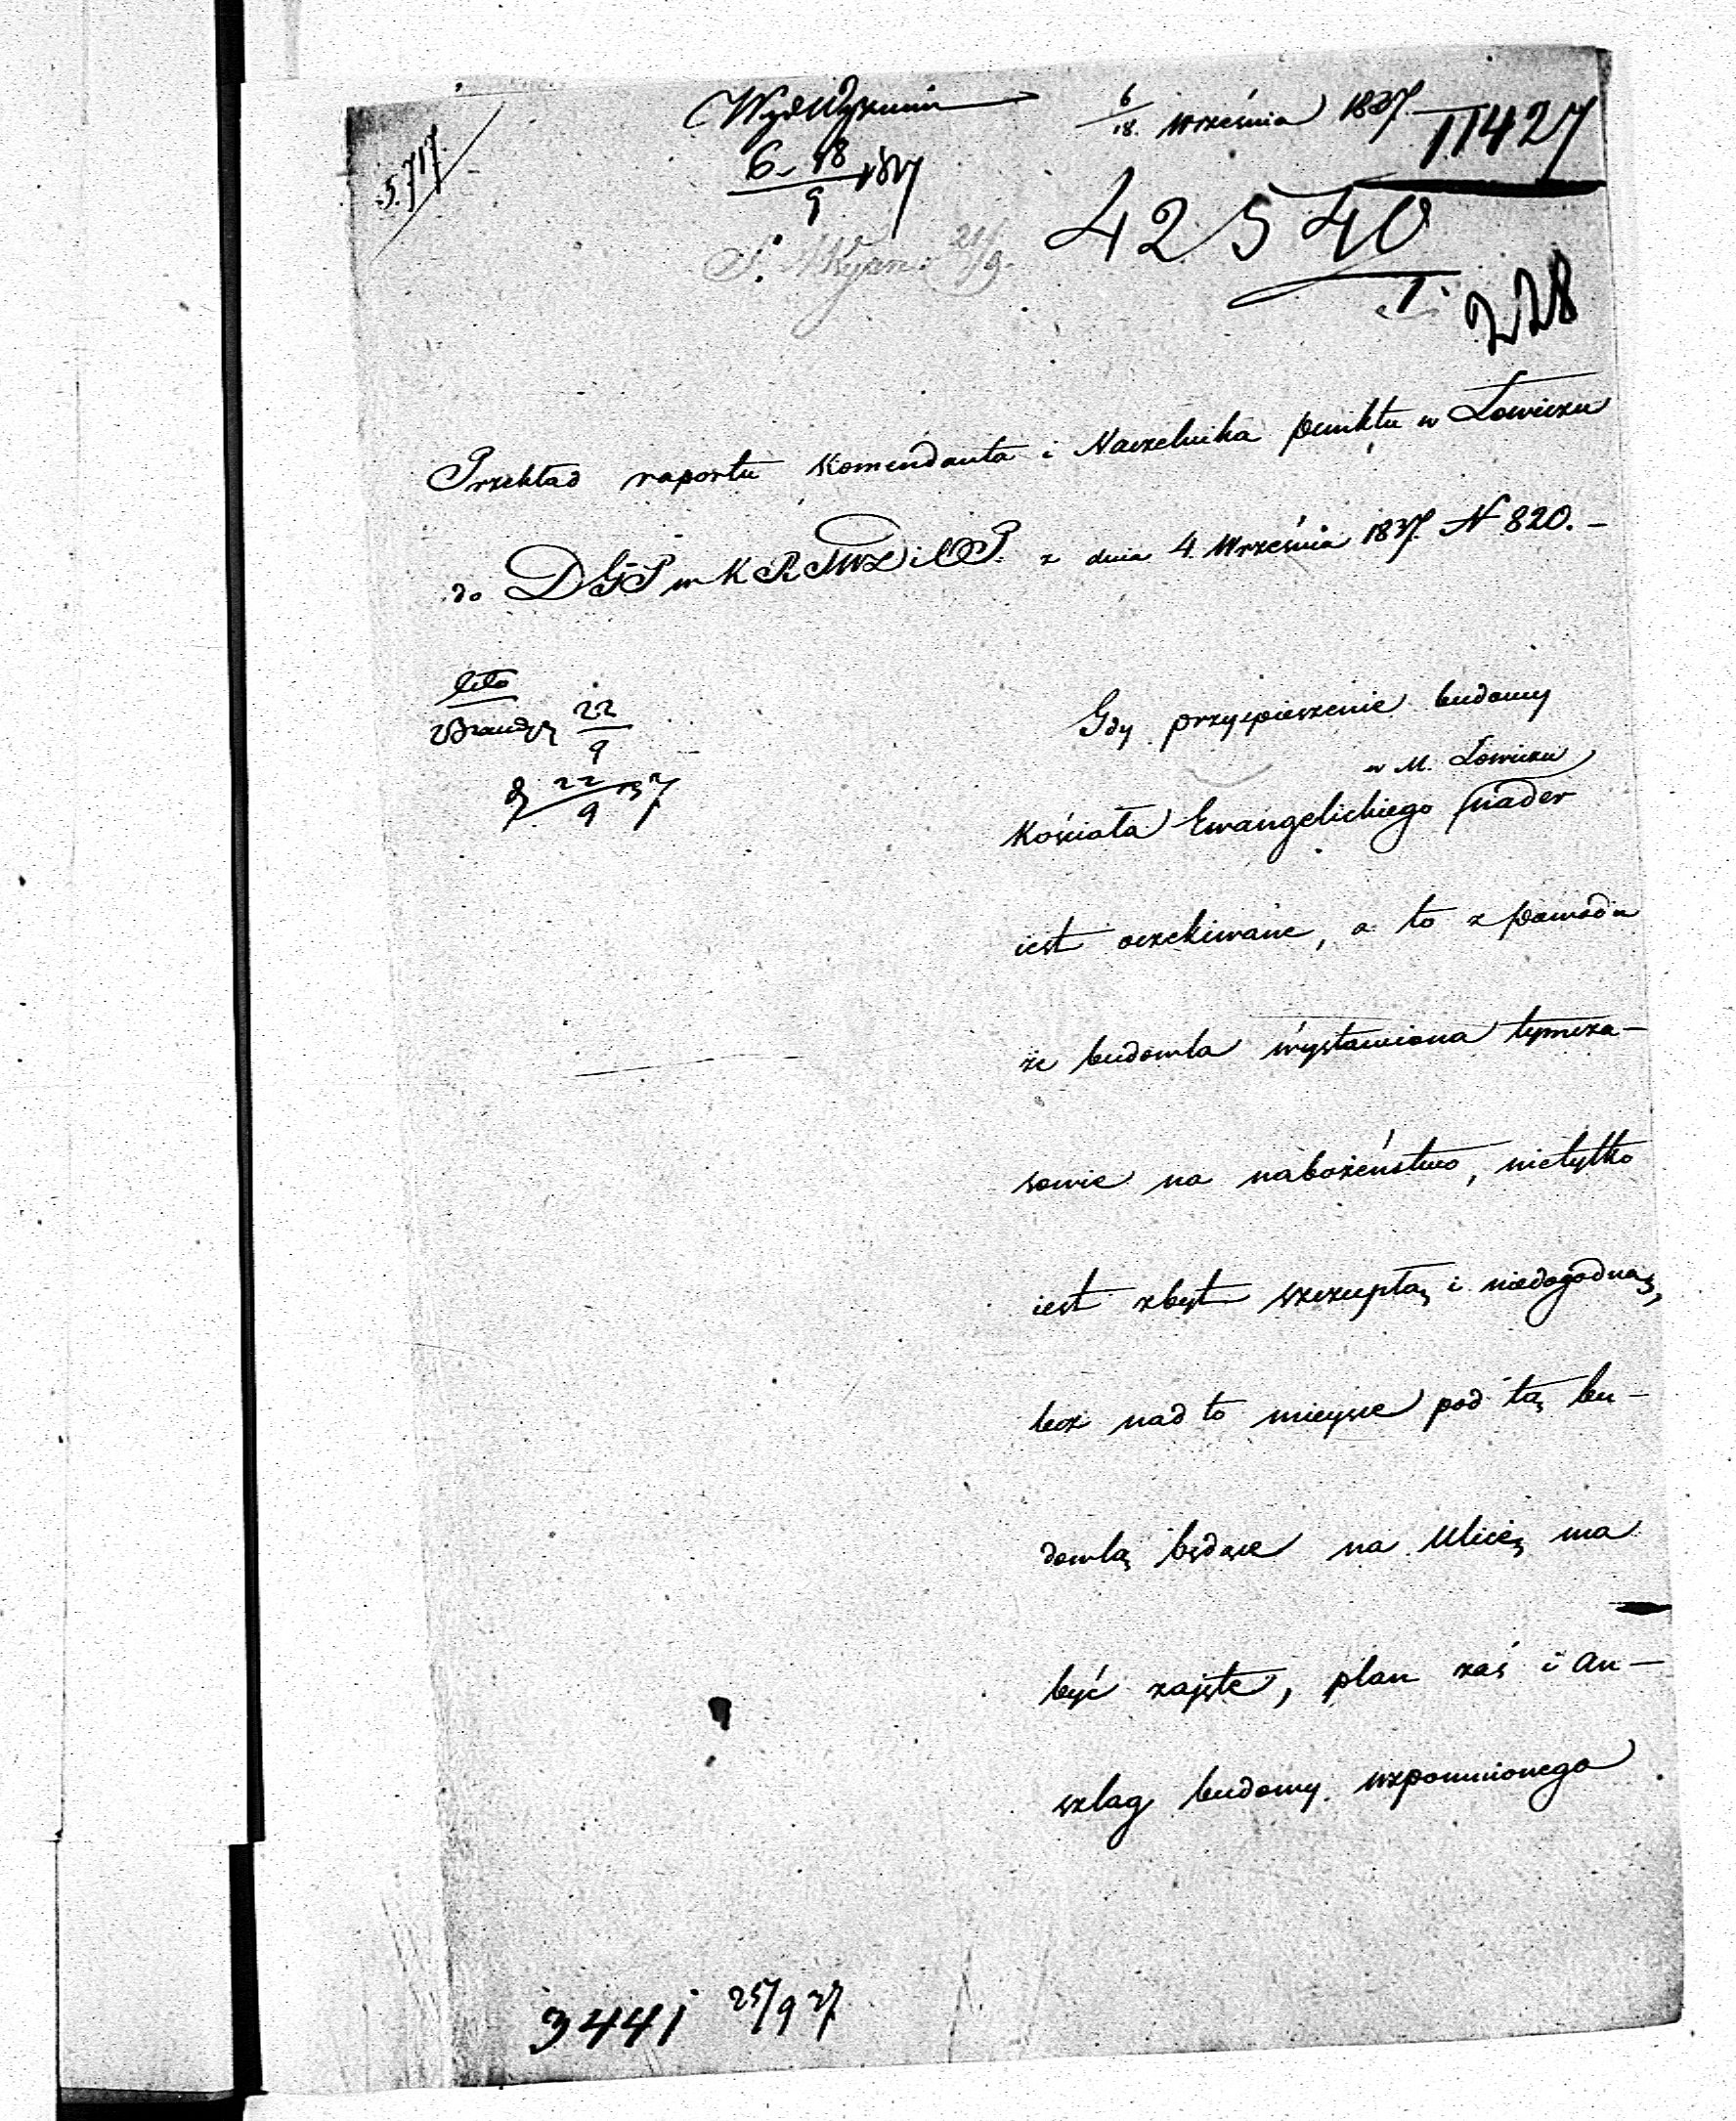 5.717.
6/18. Września 1837.
11427
6-18/9 1837
42540
I.
228
Przekład raportu Komendanta i Naczelnika punktu w Łowiczu
do DGP w KRSWD i OP. z dnia 4 Września 1837. N 820. –
22/9
22/9 37
Gdy przyspieszenie budowy
w M. Łowiczu
Kościoła Ewangelickiego nader
iest oczekiwane, a to z powodu
że budowla wystawiona tymcza-
sowie na nabożeństwo, nietylko
iest zbyt szczupłą i niedogodną,
lecz nad to mieysce pod tą bu-
dowlą będące na Ulicę ma
być zajęte, plan zaś i an-
szlag budowy wspomnionego
3441 25/9 37